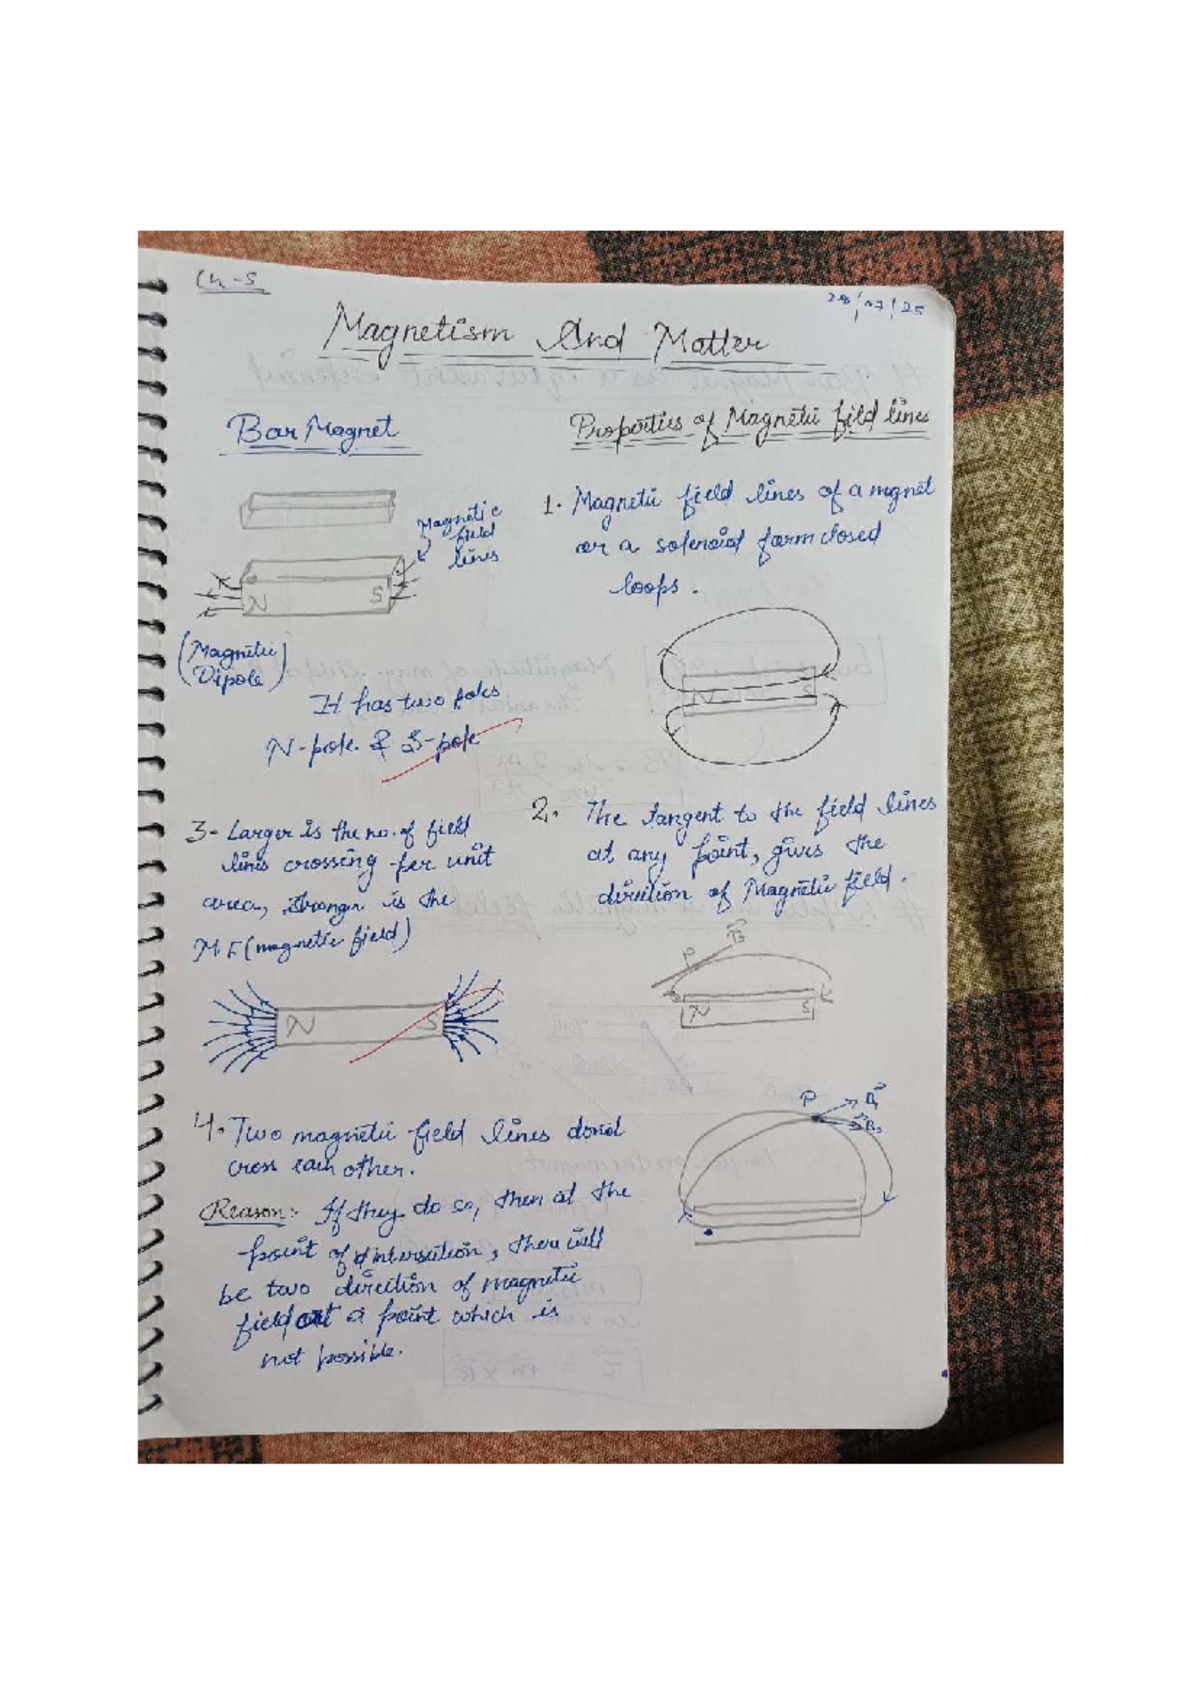 Ch-5
28/07/25
Magnetism And Matter
Bar Magnet
Magnetic
field
lines
N
S
(Magnetic
Dipole)
It has two poles
N-pole & S-pole
Properties of Magnetic field lines
1. Magnetic field lines of a mgnet
or a solenoid form closed
loops.
N
S
2. The tangent to the field lines
at any point, gives the
direction of Magnetic field.
P
B
N
S
3- Larger is the no. of field
lines crossing per unit
area, stronger is the
M.F (magnetic field)
N
S
4. Two magnetic field lines donot
cross each other.
Reason:- If they do so, then at the
point of intersection, there will
be two direction of magnetic
field at a point which is
not possible.
P
B₁
B₂